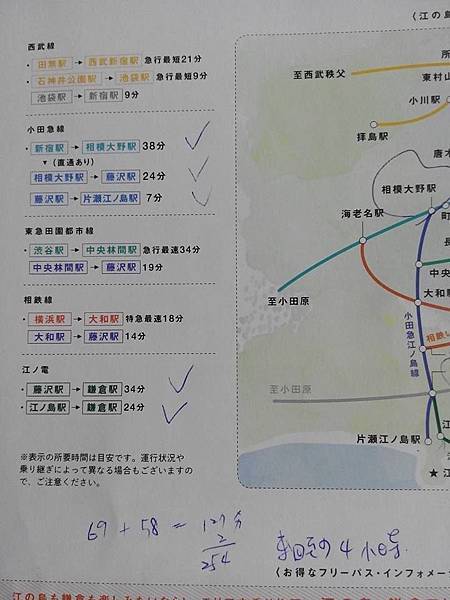 〈江の島
西武線
・田無駅→西武新宿駅 急行最短21分
・石神井公園駅→池袋駅 急行最短9分
池袋駅→新宿駅 9分
小田急線
・新宿駅→相模大野駅 38分
▼(直通あり)
相模大野駅→藤沢駅 24分
藤沢駅→片瀬江ノ島駅 7分
東急田園都市線
・渋谷駅→中央林間駅 急行最速34分
中央林間駅→藤沢駅 19分
相鉄線
・横浜駅→大和駅 特急最速18分
大和駅→藤沢駅 14分
江ノ電
・藤沢駅→鎌倉駅 34分
・江ノ島駅→鎌倉駅 24分
※表示の所要時間は目安です。運行状況や
乗り継ぎによって異なる場合もございますの
で、ご注意ください。
所
至西武秩父
東村山
小川駅
拝島駅
唐木
相模大野駅
町
海老名駅
長
中央
至小田原
大和駅
小田急江ノ島線
相鉄い
至小田原
片瀬江ノ島駅
江
★江
69 + 58 = 127分
2
254
4小时
〈お得なフリーパス・インフォメー